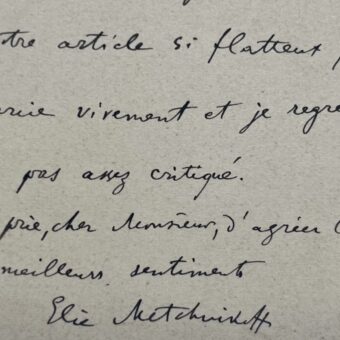 tre article si flatteur
rcie vivement et je regre
pas assez critiqué.
prie, cher Monsieur, d'agréer
meilleurs sentiments
Elie Metchnikoff